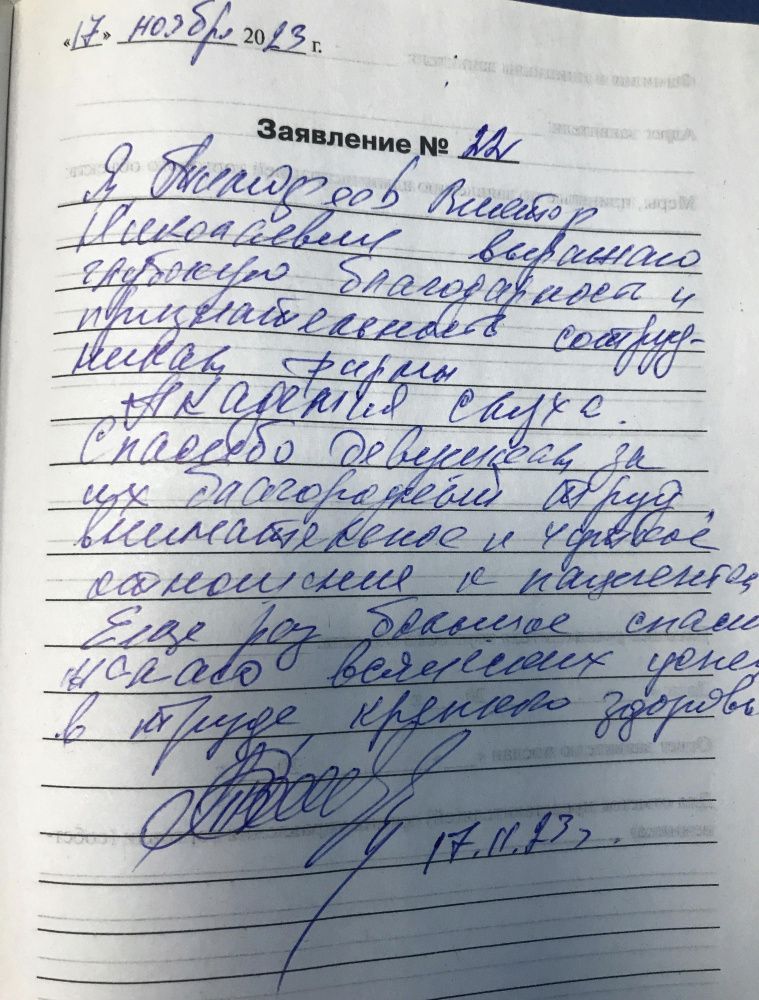 «17» ноябр 2023 г.
Заявление № 22
Я Виктор
Николаевич выражаю
глубокую благодарность и
признательность сотруд-
никам фирмы
Академия слуха.
Спасибо девушкам за
их благородный труд,
внимательное и чуткое
отношение к пациентам
Еще раз большое спаси
желаю всяческих успех
в труде, крепкого здоровь
17.11.23г.